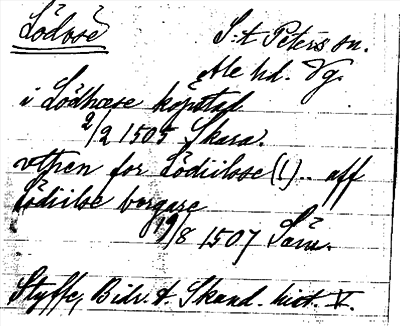 Lödöse
S:t Peters sn.
Ale hd. Vg.
i Lödhese köpstad
2/2 1505 Skara.
vthen for Lödiilose (!).. aff
Lödiilse borgare
19/8 1507 Särn.
Styffe, Bidr. t. Skand. hist. V.